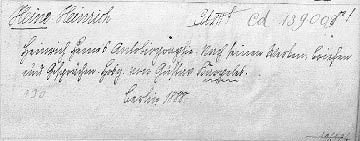 Heine Heinrich Cd 13900
Heinrich Heines Autobiographie. Nach seinen Werken, Briefen
und Gesprächen. Hrsg. von Gustav Karpeles.
Berlin 1888.